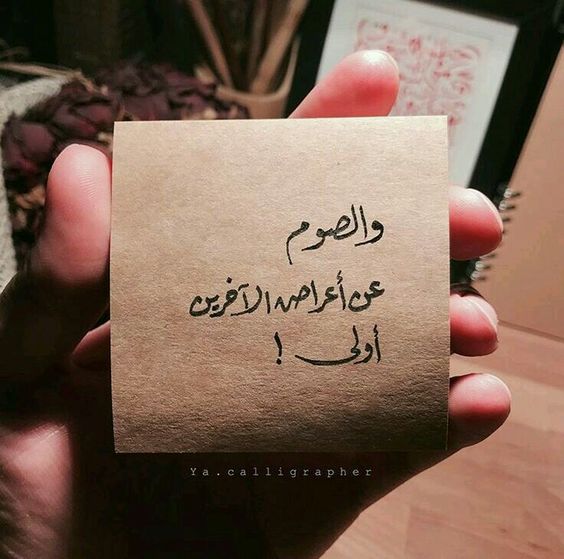 والصوم
عن أعراض الآخرين
أولى !
Ya.calligrapher